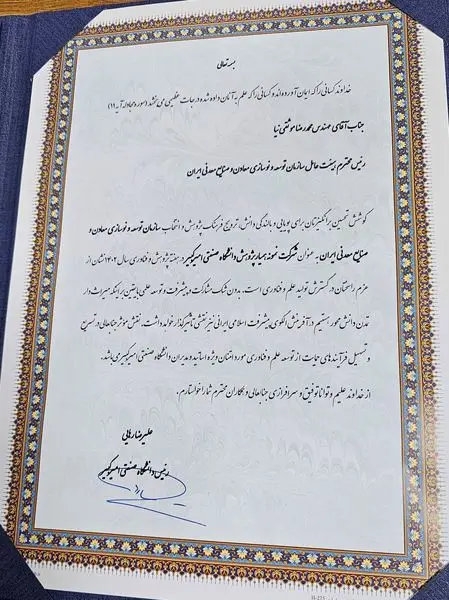 بسمه تعالی
خداوند کسانی را که ایمان آورده‌اند و کسانی را که علم به آنان داده شده درجات عظیمی می بخشد (سوره مجادله آیه ۱۱)
جناب آقای مهندس محمدرضا موثقی نیا
رئیس محترم هیئت عامل سازمان توسعه و نوسازی معادن و صنایع معدنی ایران
کوشش تحسین برانگیزتان برای پویایی و بالندگی دانش، ترویج فرهنگ پژوهش و انتخاب سازمان توسعه و نوسازی معادن و
صنایع معدنی ایران به عنوان شرکت نمونه همیار پژوهش دانشگاه صنعتی امیرکبیر در هفته پژوهش و فناوری سال ۱۴۰۲ نشان از
عزم راسختان در گسترش تولید علم و فناوری است. بدون شک مشارکت در پیشرفت و توسعه علمی با یقین بر اینکه میراث دار
تمدن دانش محور هستیم در آفرینش الگوی پیشرفت اسلامی ایرانی نیز نقشی تأثیرگذار خواهد داشت. نقش موثر جنابعالی در تسریع
و تسهیل فرآیندهای حمایت از توسعه علم و فناوری مورد امتنان ویژه اساتید و مدیران دانشگاه صنعتی امیرکبیر می باشد.
از خداوند علیم و توانا توفیق و سرافرازی جنابعالی و همکاران محترم شما را خواستارم.
علیرضا رهایی
رئیس دانشگاه صنعتی امیرکبیر